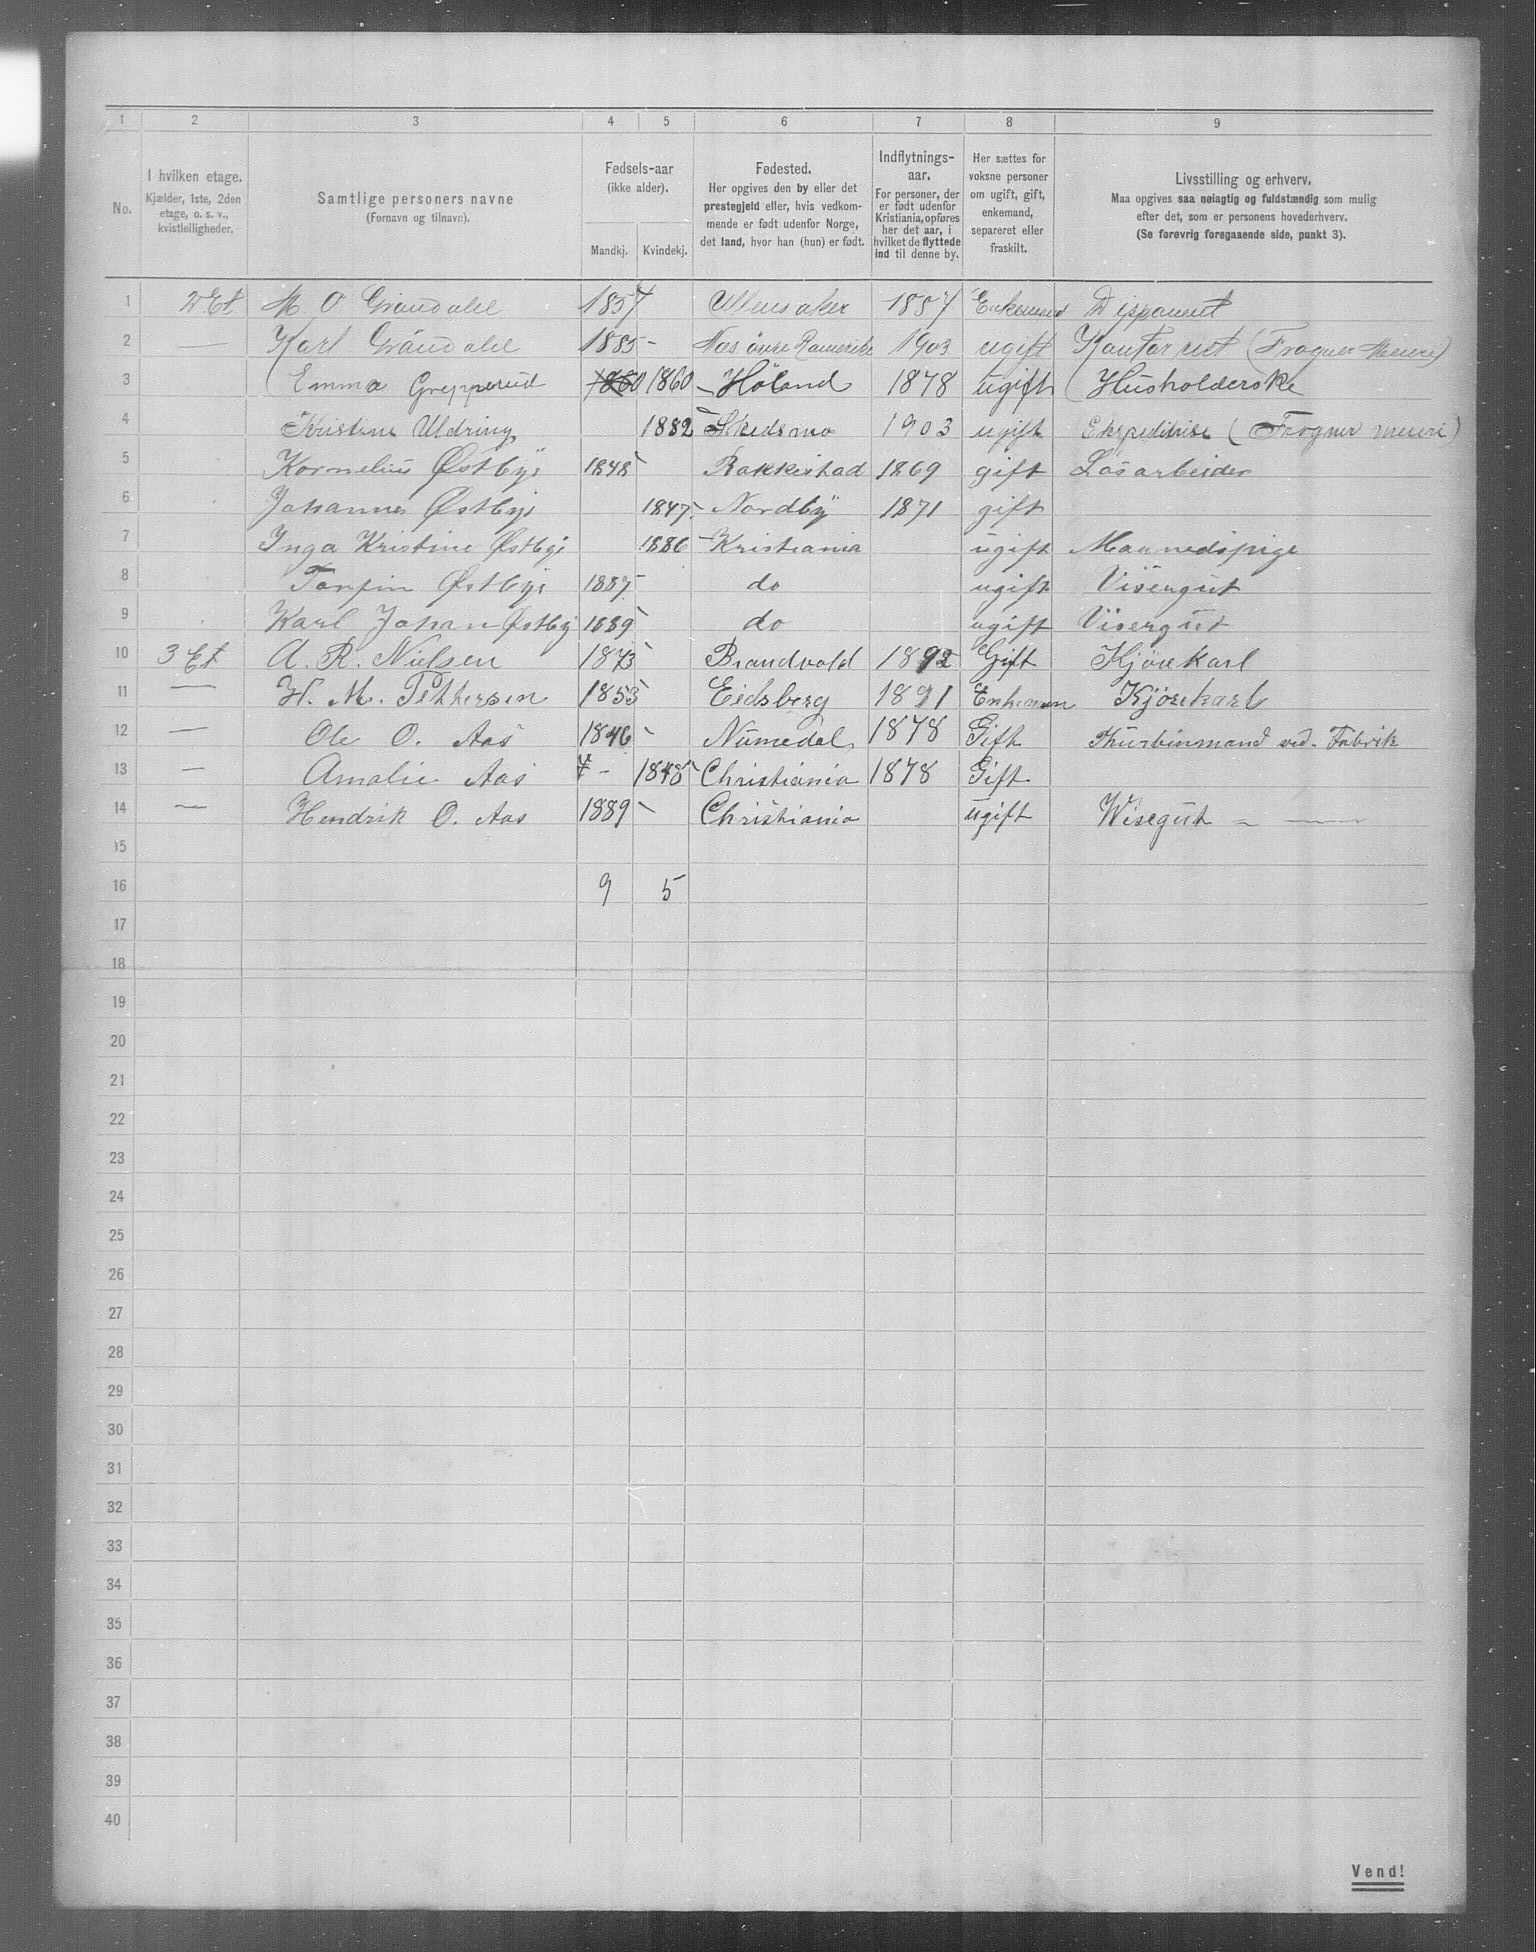 1 2 3 4 5 6 7 8 9
No.
I hvilken etage.
Kjælder, 1ste, 2den
etage, o. s. v.,
kvistleiligheder.
Samtlige personers navne
(Fornavn og tilnavn).
Fødsels-aar
(ikke alder).
Mandkj. Kvindekj.
Fødested.
Her opgives den by eller det
prestegjeld eller, hvis vedkom-
mende er født udenfor Norge,
det land, hvor han (hun) er født.
Indflytnings-
aar.
For personer, der
er født udenfor
Kristiania, opføres
her det aar, i
hvilket de flyttede
ind til denne by.
Her sættes for
voksne personer
om ugift, gift,
enkemand,
separeret eller
fraskilt.
Livsstilling og erhverv.
Maa opgives saa nøiagtig og fuldstændig som mulig
efter det, som er personens hovederhverv.
(Se forøvrig foregaaende side, punkt 3).
1 2 Et M. O Gröndahl 1857 Ullensaker 1857 Enkemand Disponent
2 — Karl Gröndahl 1885 - Næs øvre Romerike 1903 ugift Kontorist (Frogner Meieri)
3 Emma Grepperud 1860 1860 - Høland 1878 ugift Husholderske
4 Kristine Uldring 1882 - Skedsmo 1903 ugift Ekspeditrise (Frogner meieri)
5 Kornelius Østbye 1848 Rakkestad 1869 gift Løsarbeider
6 Johanne Østbye 1847 Nordby 1871 gift
7 Inga Kristine Østbye 1886 - Kristiania ugift Maanedspige
8 Torfin Østbye 1887 do ugift Visergut
9 Karl Johan Østby 1889 do ugift Visergut
10 3 Et A. R. Nielsen 1873 Brandvold 1892 Gift Kjørekarl
11 — H. M. Pettersen 1853 Eidsberg 1891 Enkeman Kjørekarl
12 — Ole O. Aas 1846 - Numedal 1878 Gift Thurbinmand ved. Fabrik
13 — Amalie Aas - 1848 Christiania 1878 Gift
14 — Hendrik O. Aas 1889 - Christiania ugift Wisegut - —
15
16 9 5
17
18
19
20
21
22
23
24
25
26
27
28
29
30
31
32
33
34
35
36
37
38
39
40
Vend!